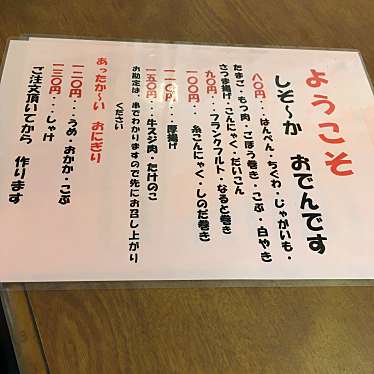 ようこそ
しぞ〜か おでんです
八〇円・・・はんぺん・ちくわ・じゃがいも・
たまご・もつ肉・ごぼう巻き・こぶ・白やき
さつま揚げ・こんにゃく・だいこん
九〇円・・・フランクフルト・なると巻き
一〇〇円・・・糸こんにゃく・しのだ巻き
一一〇円・・・厚揚げ
一五〇円・・・牛スジ肉・たけのこ
お勘定は、串でわかりますので先にお召し上がり
ください
あったか〜い おにぎり
一二〇円・・・うめ・おかか・こぶ
一三〇円・・・しゃけ
ご注文頂いてから 作ります